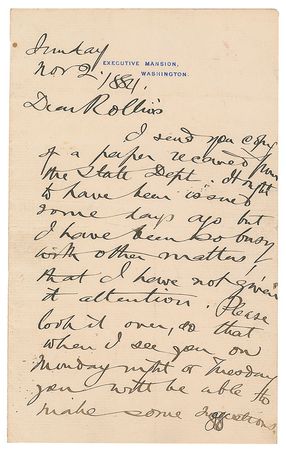 Sunday
EXECUTIVE MANSION,
WASHINGTON.
Nov 2. 1884.
Dear Rollins
I send you copy
of a paper received from
the State Dept. It ought
to have been issued
some days ago but
I have been so busy
with other matters,
that I have not given
it attention. Please
look it over, so that
when I see you on
Monday night or Tuesday
you will be able to
make some suggestions